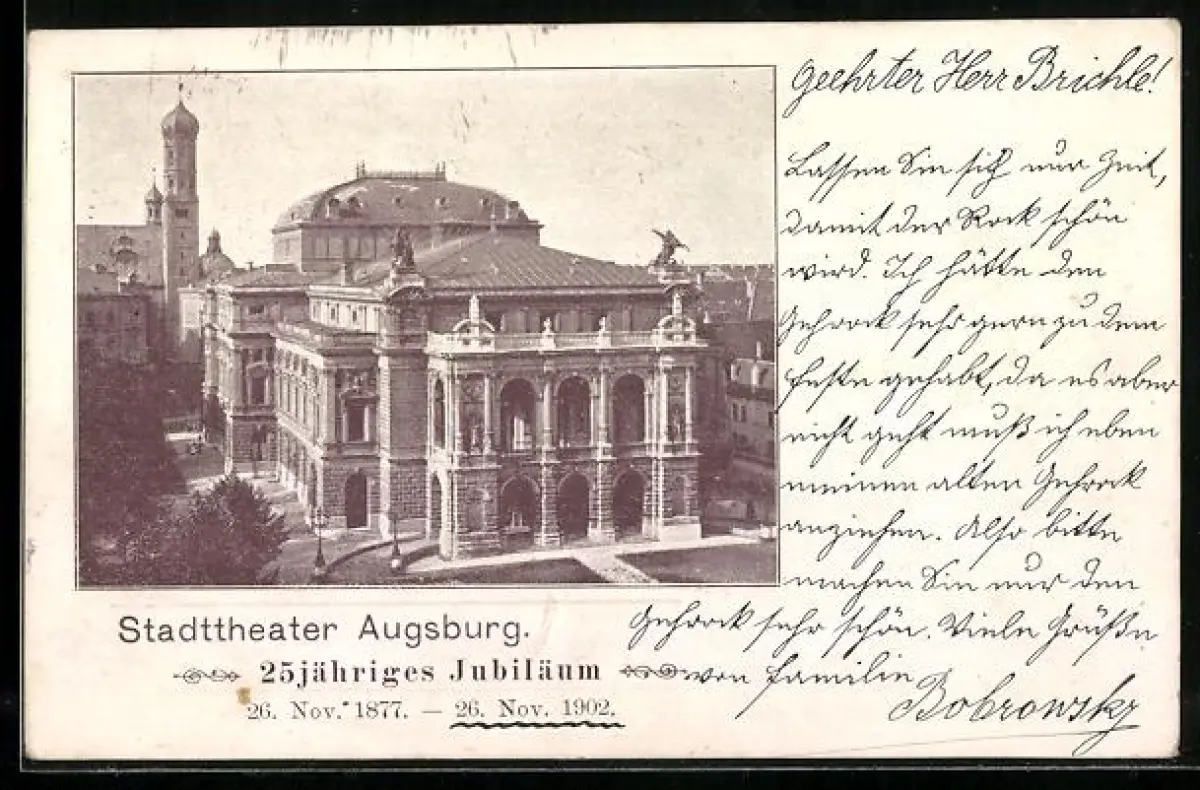 Geehrter Herr Brichle!
Lassen Sie sich nur Zeit,
damit der Rock schön
wird. Ich hätte den
Gehrock sehr gern zu dem
Feste gehabt, da es aber
nicht geht muß ich eben
meinen alten Gehrock
anziehen. Also bitte
machen Sie nur den
Gehrock sehr schön. Viele Grüße
von Familie
Bobrowsky
Stadttheater Augsburg.
25jähriges Jubiläum
26. Nov. 1877. — 26. Nov. 1902.